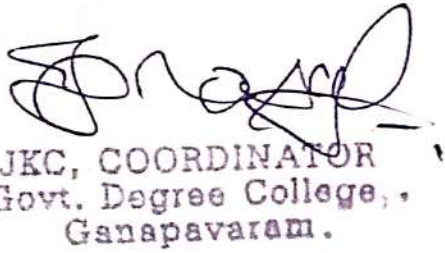 JKC, COORDINATOR
Govt. Degree College, .
Ganapavaram.